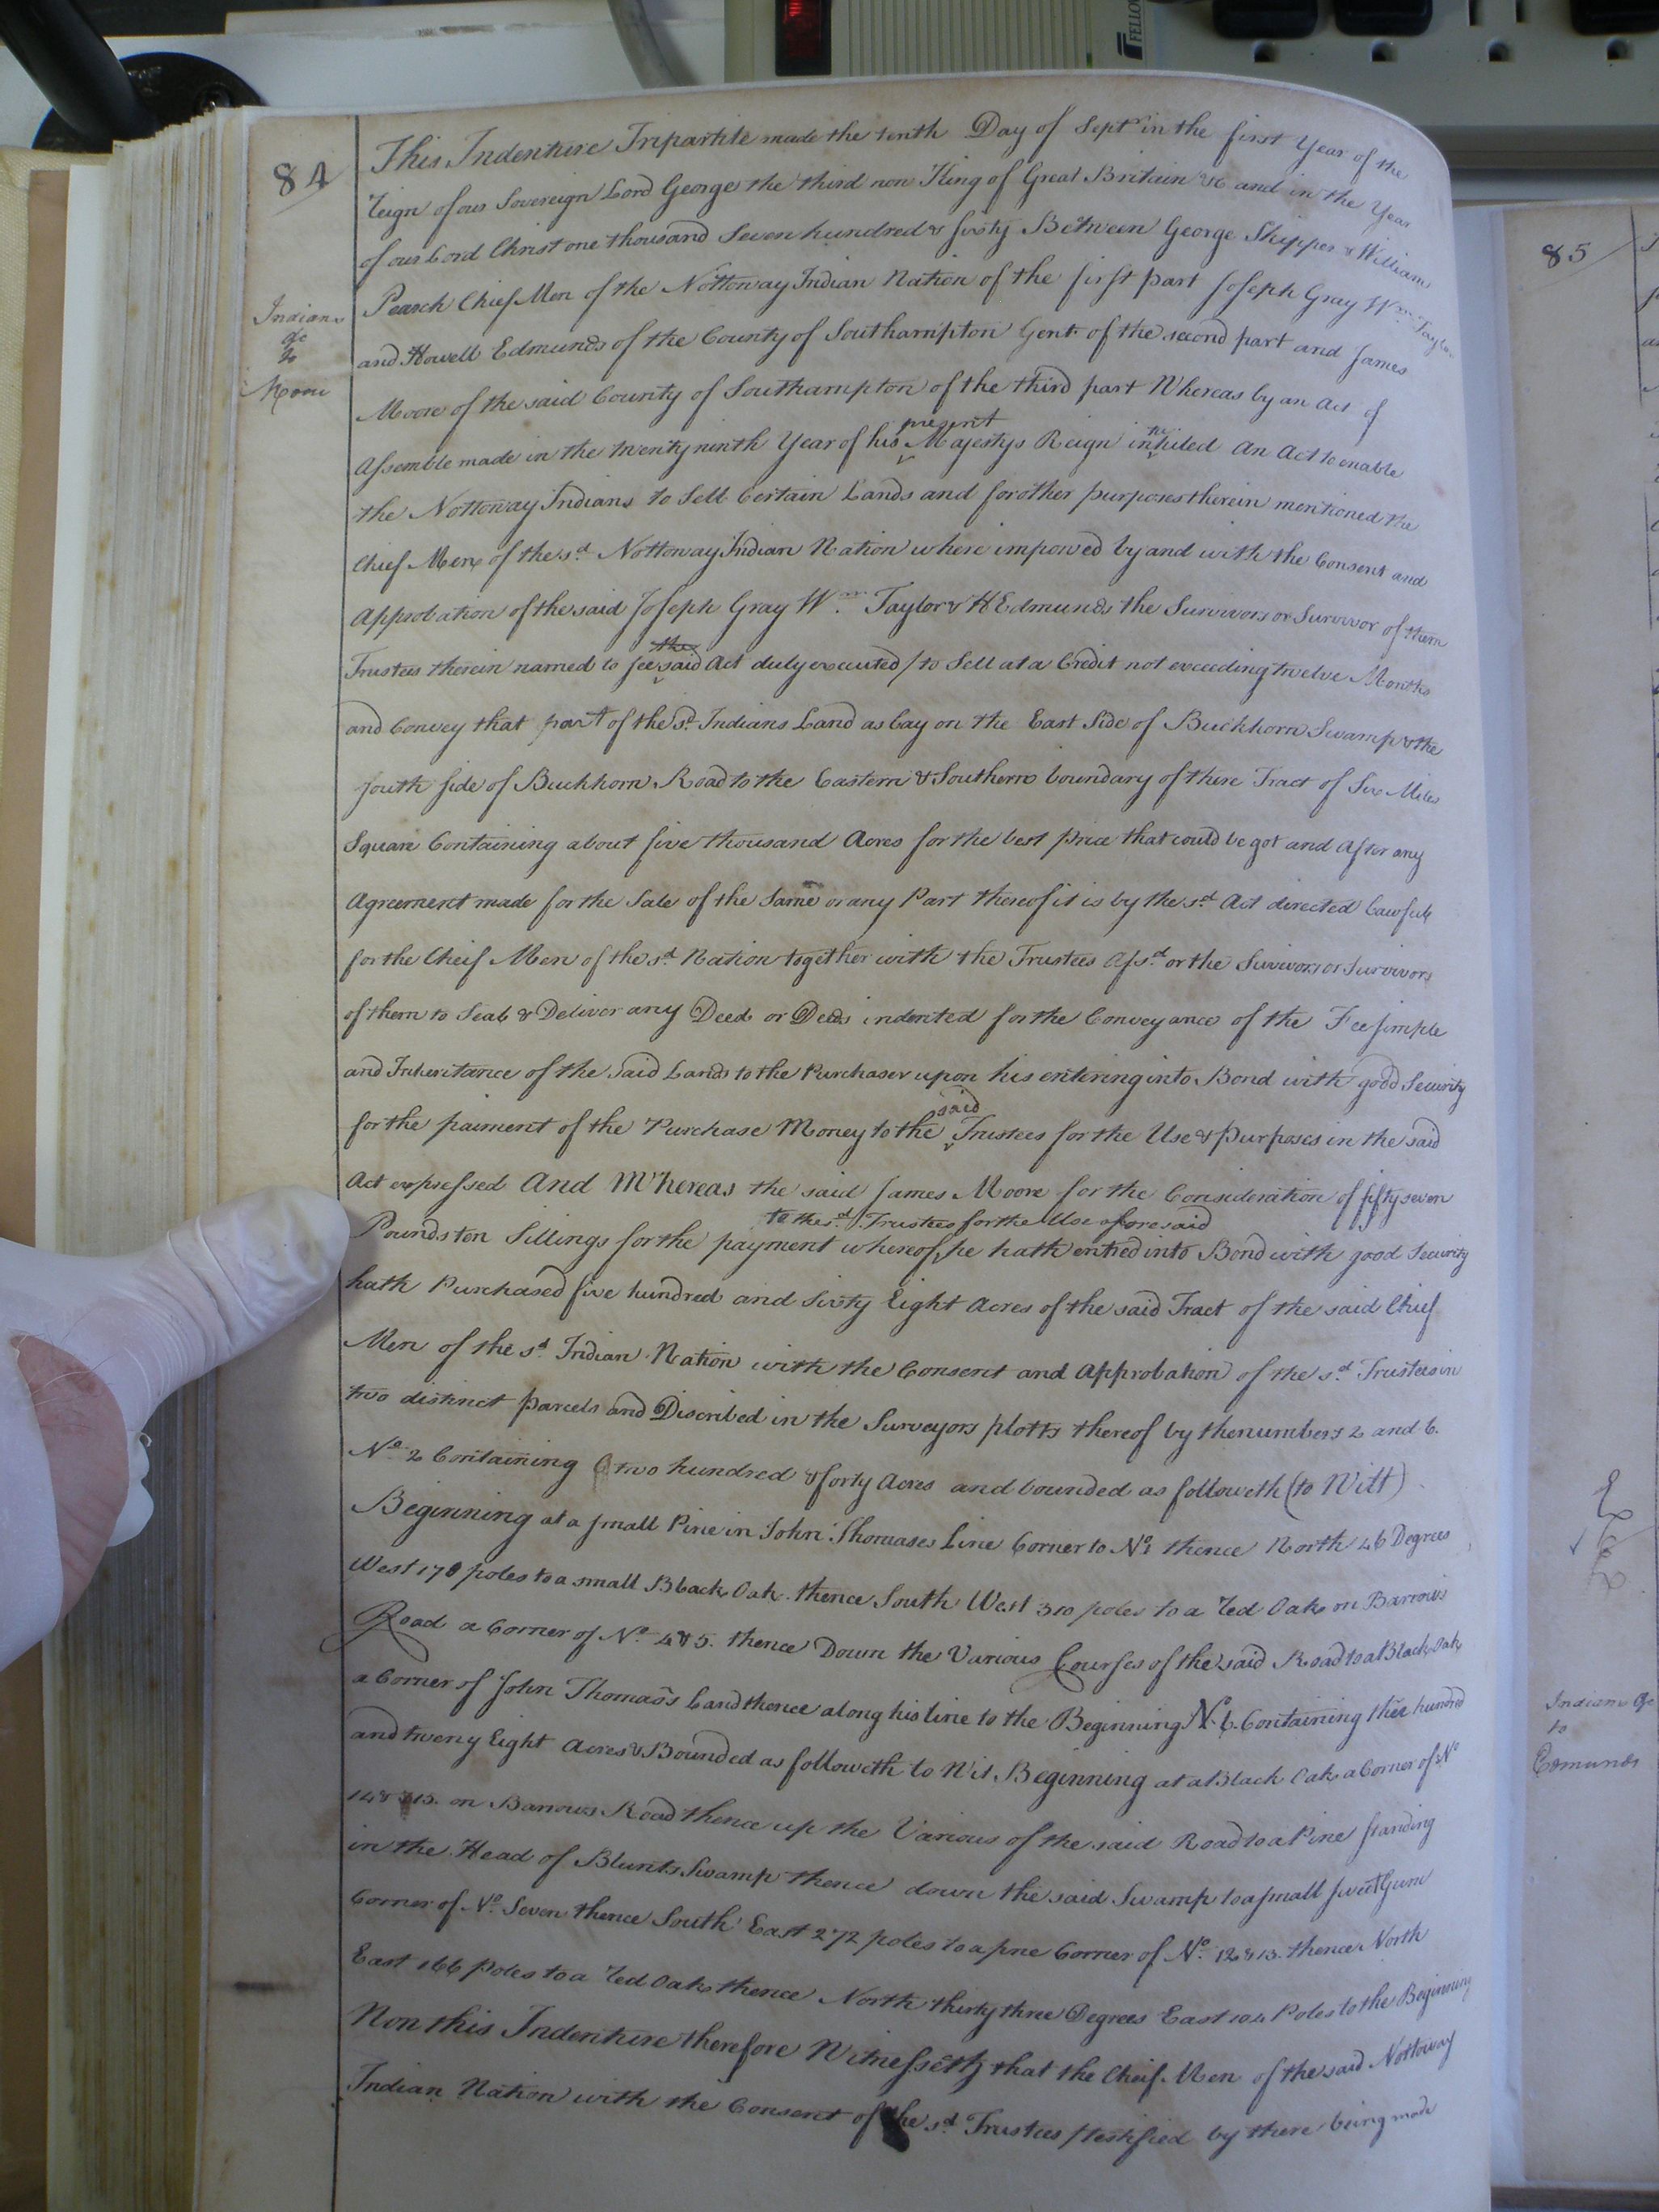 FELLO
84
This Indenture Tripartite made the tenth Day of Sept.r in the first Year of the
Reign of our Sovereign Lord George the third now King of Great Britain &c and in the Year
of our Lord Christ one thousand Seven hundred & sixty Between George Skipper & William
Pearch Chief Men of the Nottoway Indian Nation of the first part Joseph Gray Wm. Taylor
and Howell Edmunds of the County of Southampton Gent. of the second part and James
Indians
&c
to
Moore
Moore of the said County of Southampton of the third part Whereas by an Act of
present
Assemble made in the twenty ninth Year of his Majestys Reign intituled An Act to enable
the Nottoway Indians to Sell Certain Lands and for other purposes therein mentioned the
Chief Men of the sd. Nottoway Indian Nation where impowed by and with the Consent and
Approbation of the said Joseph Gray Wm. Taylor & H Edmunds the Survivors or Survivor of them
the
Trustees therein named to see said Act duly executed / to Sell at a Credit not exceeding twelve Months
and Convey that part of the sd. Indians Land as Lay on the East Side of Buckhorn Swamp & the
South side of Buckhorn Road to the Eastern & Southern boundary of there Tract of Six Miles
Square Containing about five thousand Acres for the best price that could be got and After any
Agreement made for the Sale of the Same or any Part thereof it is by the sd. Act directed Lawfull
for the Cheif Men of the sd. Nation together with the Trustees Afsd. or the Survivors or Survivors
of them to Seal & Deliver any Deed or Deeds indented for the Conveyance of the Fee simple
and Inheritance of the said Lands to the Purchaser upon his entering into Bond with good Security
said
for the paiment of the Purchase Money to the Trustees for the Use & purposes in the said
Act expressed And Whereas the said James Moore for the Consideration of fifty seven
to the sd. Trustees for the Use aforesaid
Pounds ten Sillings for the payment whereof he hath entred into Bond with good Security
hath Purchased five hundred and Sixty Eight Acres of the said Tract of the said Chief
Men of the sd. Indian Nation with the Consent and Approbation of the sd. Trustees in
two distinct parcels and Discribed in the Surveyors plotts thereof by the numbers 2 and 6.
No. 2 Containing two hundred & forty Acres and bounded as followeth (to Witt)
Beginning at a small Pine in John Thomases Line Corner to No. 1 thence North 46 Degrees
West 170 poles to a small Black Oak thence South West 310 poles to a Red Oak on Barrows
Road a Corner of No. 4 & 5. thence Down the Various Courses of the said Road to a Black Oak
a Corner of John Thomas's Land thence along his line to the Beginning No. 6. Containing three hundred
and tweny Eight Acres & Bounded as followeth to Wit. Beginning at a Black Oak a Corner of No
14 & 15. on Barrows Road thence up the Various of the said Road to a Pine standing
in the Head of Blunts Swamp thence down the said Swamp to a small sweet Gum
Corner of No. Seven thence South East 272 poles to a pne Corner of No. 12 & 13. thence North
East 166 Poles to a Red Oak thence North thirty three Degrees East 104 Poles to the Beginning
Now this Indenture therefore Witnesseth that the Cheif Men of the said Nottoway
Indian Nation with the Consent of the sd. Trustees testified by there being made
85
Indians &c
to
Edmunds